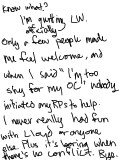 Know what?
I'm quitting LW.
officially
Only a few people made
me feel welcome, and
when I said "I'm too
shy for my OC" nobody
initiated any RPs to help.
I never really had fun
with Lloyd or anyone
else. Plus it's boring when
there's no conflict. Bye.